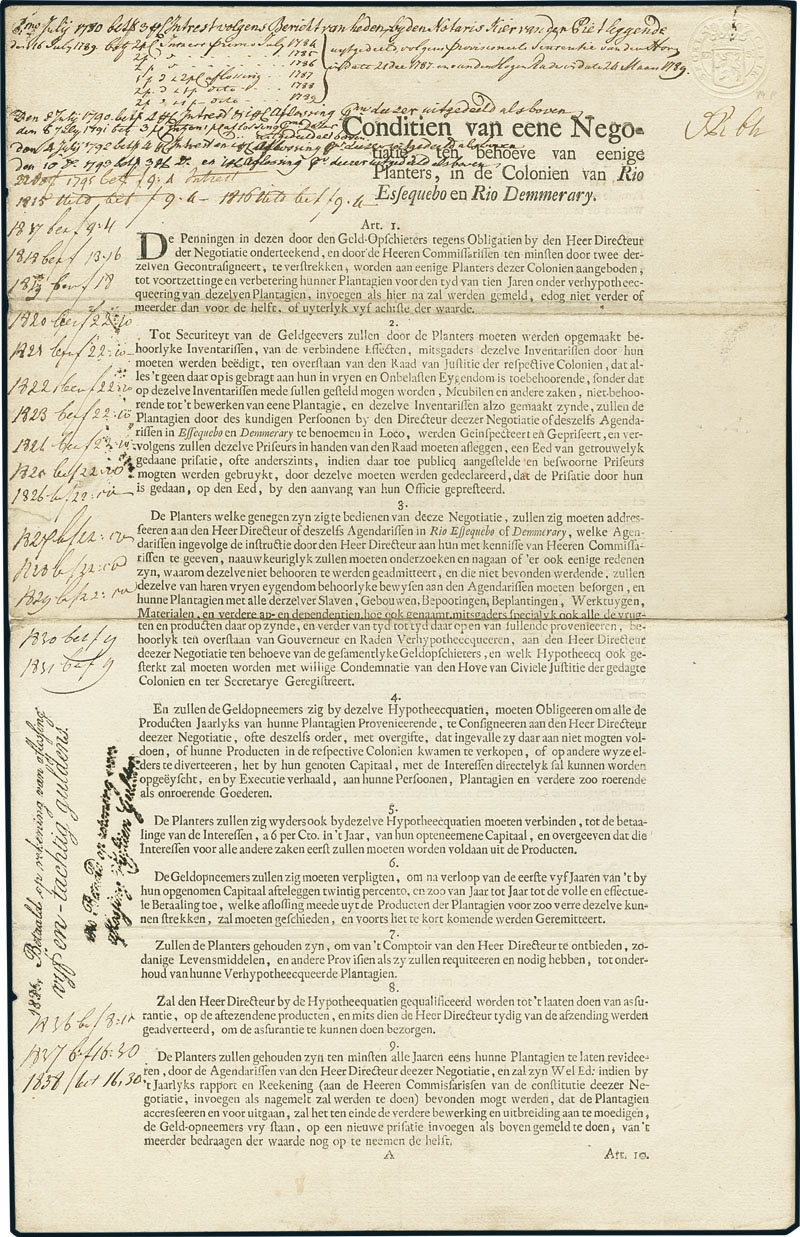 Pmo July 1780 betf 3 Intrest volgens Bericht van heden, by den Notaris Kier van der Piet leggende
den 16 July 1789 betf July 1784
1785
1786
2 p aflossing 1787
1788
1789
uytgedeelt, volgens provisioneele Sententie van den Hove
in dato 21 dec 1787 en van den Hogen Rade in dato 24 Maart 1789.
Den July 1790 betf 4 Intrest en Aflossing deezer uitgedeeld als boven
den 1791 betf 3 aflossing
den 4 July 1792 betf 4 Intrest en aflossing
den 10 1793 betf 3 en aflossing deezer
1795 betf f 9:4 Intrest
1815 betf f 9:4 - 1816 betf f 9:4
1817 betf 9:4
1818 betf 13:16
1819 betf 18
1820 betf 22:10
1821 betf 22:10
1822 betf 22:10
1823 betf 22:10
betf 22:10
betf 22:10
1826 bf 22:10
betf 22:10
betf 22:10
1829 betf 22:10
1830 betf 9
1831 betf 9
Betaald op rekening van aflossing
vyf en tachtig guldens
op rekening van
aflossing
1836 bef 8:15
1837 bf 16:30
1838 / bet 16,30
Conditien van eene Nego-
tiatie, ten behoeve van eenige
Planters, in de Colonien van Rio
Essequebo en Rio Demmerary.
Art. 1.
De Penningen in dezen door den Geld-Opschieters tegens Obligatien by den Heer Directeur
der Negotiatie onderteekend, en door de Heeren Commissarissen ten minsten door twee der-
zelven Gecontrasigneert, te verstrekken, worden aan eenige Planters dezer Colonien aangeboden,
tot voortzettinge en verbetering hunner Plantagien voor den tyd van tien Jaren onder verhypotheec-
queering van dezelven Plantagien, invoegen als hier na zal werden gemeld, edog niet verder of
meerder dan voor de helft, of uyterlyk vyf achtste der waarde.
2.
Tot Securiteyt van de Geldgeevers zullen door de Planters moeten werden opgemaakt be-
hoorlyke Inventarissen, van de verbindene Effecten, mitsgaders dezelve Inventarissen door hun
moeten werden beëdigt, ten overstaan van den Raad van Justitie der respective Colonien, dat al-
les 't geen daar op is gebragt aan hun in vryen en Onbelasten Eygendom is toebehoorende, sonder dat
op dezelve Inventarissen mede sullen gesteld mogen worden, Meubilen en andere zaken, niet behoo-
rende tot 't bewerken van eene Plantagie, en dezelve Inventarissen alzo gemaakt zynde, zullen de
Plantagien door des kundigen Persoonen by den Directeur deezer Negotiatie of deszelfs Agenda-
rissen in Essequebo en Demmerary te benoemen in Loco, werden Geinspecteert en Gepriseert, en ver-
volgens zullen dezelve Priseurs in handen van den Raad moeten afleggen, een Eed van getrouwelyk
gedaane prisatie, ofte anderszints, indien daar toe publicq aangestelde en beswoorne Priseurs
mogten werden gebruykt, door dezelve moeten werden gedeclareerd, dat de Prisatie door hun
is gedaan, op den Eed, by den aanvang van hun Officie gepresteerd.
3.
De Planters welke genegen zyn zig te bedienen van deeze Negotiatie, zullen zig moeten addres-
seeren aan den Heer Directeur of deszelfs Agendarissen in Rio Essequebo of Demmerary, welke Agen-
darissen ingevolge de instructie door den Heer Directeur aan hun met kennisse van Heeren Commissa-
rissen te geeven, naauwkeuriglyk zullen moeten onderzoeken en nagaan of 'er ook eenige redenen
zyn, waarom dezelve niet behooren te werden geadmitteert, en die niet bevonden werdende, zullen
dezelve van haren vryen eygendom behoorlyke bewysen aan den Agendarissen moeten besorgen, en
hunne Plantagien met alle derzelver Slaven, Gebouwen, Bepootingen, Beplantingen, Werktuygen,
Materialen, en verdere ap- en dependentien, hoe ook genaamt, mitsgaders specialyk ook alle de vrug-
ten en producten daar op zynde, en verder van tyd tot tyd daar op en van sullende provenieeren, be-
hoorlyk ten overstaan van Gouverneur en Raden Verhypothecqueeren, aan den Heer Directeur
deezer Negotiatie ten behoeve van de gesamentlyke Geldopschieters, en welk Hypothecq ook ge-
sterkt zal moeten worden met willige Condemnatie van den Hove van Civiele Justitie der gedagte
Colonien en ter Secretarye Geregistreert.
4.
En zullen de Geldopneemers zig by dezelve Hypothecquatien, moeten Obligeeren om alle de
Producten Jaarlyks van hunne Plantagien Provenieerende, te Consigneeren aan den Heer Directeur
deezer Negotiatie, ofte deszelfs order, met overgifte, dat ingevalle zy daar aan niet mogten vol-
doen, of hunne Producten in de respective Colonien kwamen te verkopen, of op andere wyze el-
ders te diverteeren, het by hun genoten Capitaal, met de Interessen directelyk sal kunnen worden
opgeëyscht, en by Executie verhaald, aan hunne Persoonen, Plantagien en verdere zoo roerende
als onroerende Goederen.
5.
De Planters zullen zig wyders ook by dezelve Hypothecquatien moeten verbinden, tot de betaa-
linge van de Interessen, a 6 per Cto. in 't Jaar, van hun opteneemene Capitaal, en overgeeven dat die
Interessen voor alle andere zaken eerst zullen moeten worden voldaan uit de Producten.
6.
De Geldopneemers zullen zig moeten verpligten, om na verloop van de eerste vyf Jaaren van 't by
hun opgenomen Capitaal afteleggen twintig percento, en zoo van Jaar tot Jaar tot de volle en effectue-
le Betaaling toe, welke aflossing meede uyt de Producten der Plantagien voor zoo verre dezelve kun-
nen strekken, zal moeten geschieden, en voorts het te kort komende werden Geremitteert.
7.
Zullen de Planters gehouden zyn, om van 't Comptoir van den Heer Directeur te ontbieden, zo-
danige Levensmiddelen, en andere Provisien als zy zullen requiteeren en nodig hebben, tot onder-
houd van hunne Verhypothecqueerde Plantagien.
8.
Zal den Heer Directeur by de Hypothecquatien gequalificeerd worden tot 't laaten doen van assu-
rantie, op de aftezendene producten, en mits dien de Heer Directeur tydig van de afzending werden
geadverteerd, om de assurantie te kunnen doen bezorgen.
9.
De Planters zullen gehouden zyn ten minsten alle Jaaren eens hunne Plantagien te laten revidee-
ren, door de Agendarissen van den Heer Directeur deezer Negotiatie, en zal zyn Wel Ed: indien by
't Jaarlyks rapport en Reekening (aan de Heeren Commissarissen van de constitutie deezer Ne-
gotiatie, invoegen als nagemelt zal werden te doen) bevonden mogt werden, dat de Plantagien
accresseeren en voor uitgaan, zal het ten einde de verdere bewerking en uitbreiding aan te moedigen,
de Geld-opneemers vry staan, op een nieuwe prisatie invoegen als boven gemeld te doen, van 't
meerder bedraagen der waarde nog op te neemen de helft.
A Art. 10.